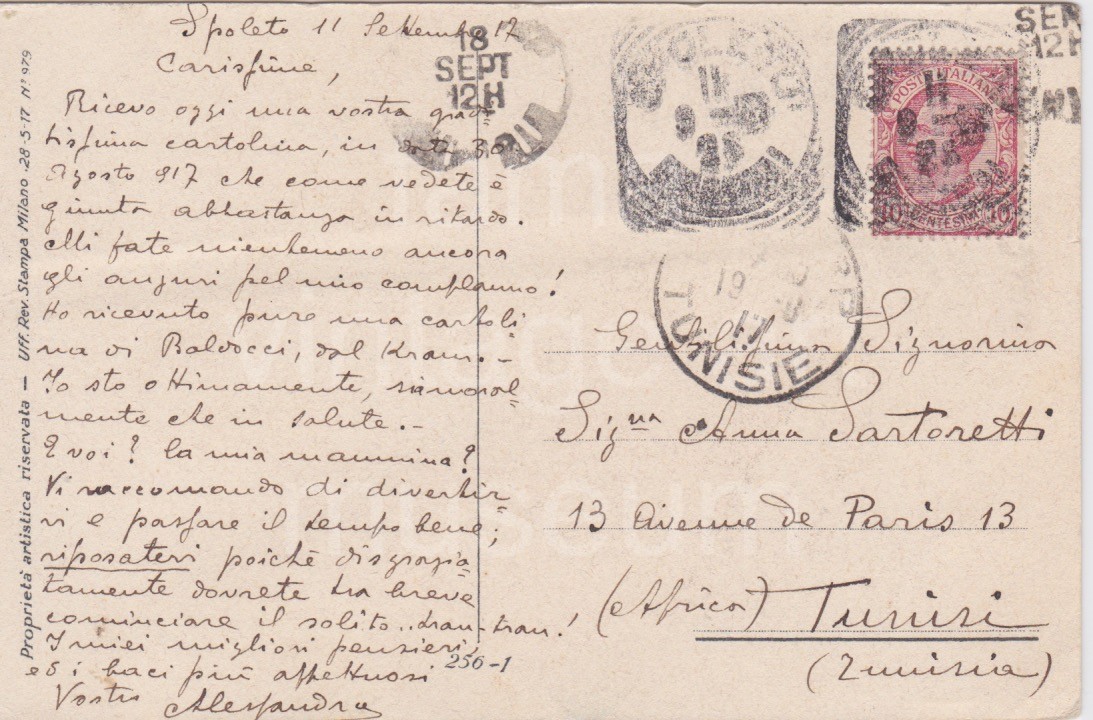 Proprietà artistica riservata — Uff. Rev. Stampa Milano - 28-5-17 N° 979
Spoleto 11 Settembre 17
Carissime,
Ricevo oggi una vostra gradi=
tissima cartolina, in data 30
Agosto 917 che come vedete è
giunta abbastanza in ritardo.
Mi fate nientemeno ancora
gli auguri pel mio compleanno!
Ho ricevuto pure una cartoli=
na di Baldocci, dal Kram. -
Io sto ottimamente, sia moral=
mente che in salute. -
E voi? la mia mammina?
Vi raccomando di divertir=
vi e passare il tempo bene;
riposatevi poichè disgrazia=
tamente dovrete tra breve
cominciare il solito.. tran-tran.!
I miei migliori pensieri,
ed i baci più affettuosi
Vostra Alessandra
256-1
18
SEPT
12H
SEP
12H
POSTE ITALIANE
10 CENTESIMI 10
19
17
TUNISIE
Gentilissima Signorina
Signa Anna Sartoretti
13 Avenue de Paris 13
(Africa) Tunisi
(Tunisia)